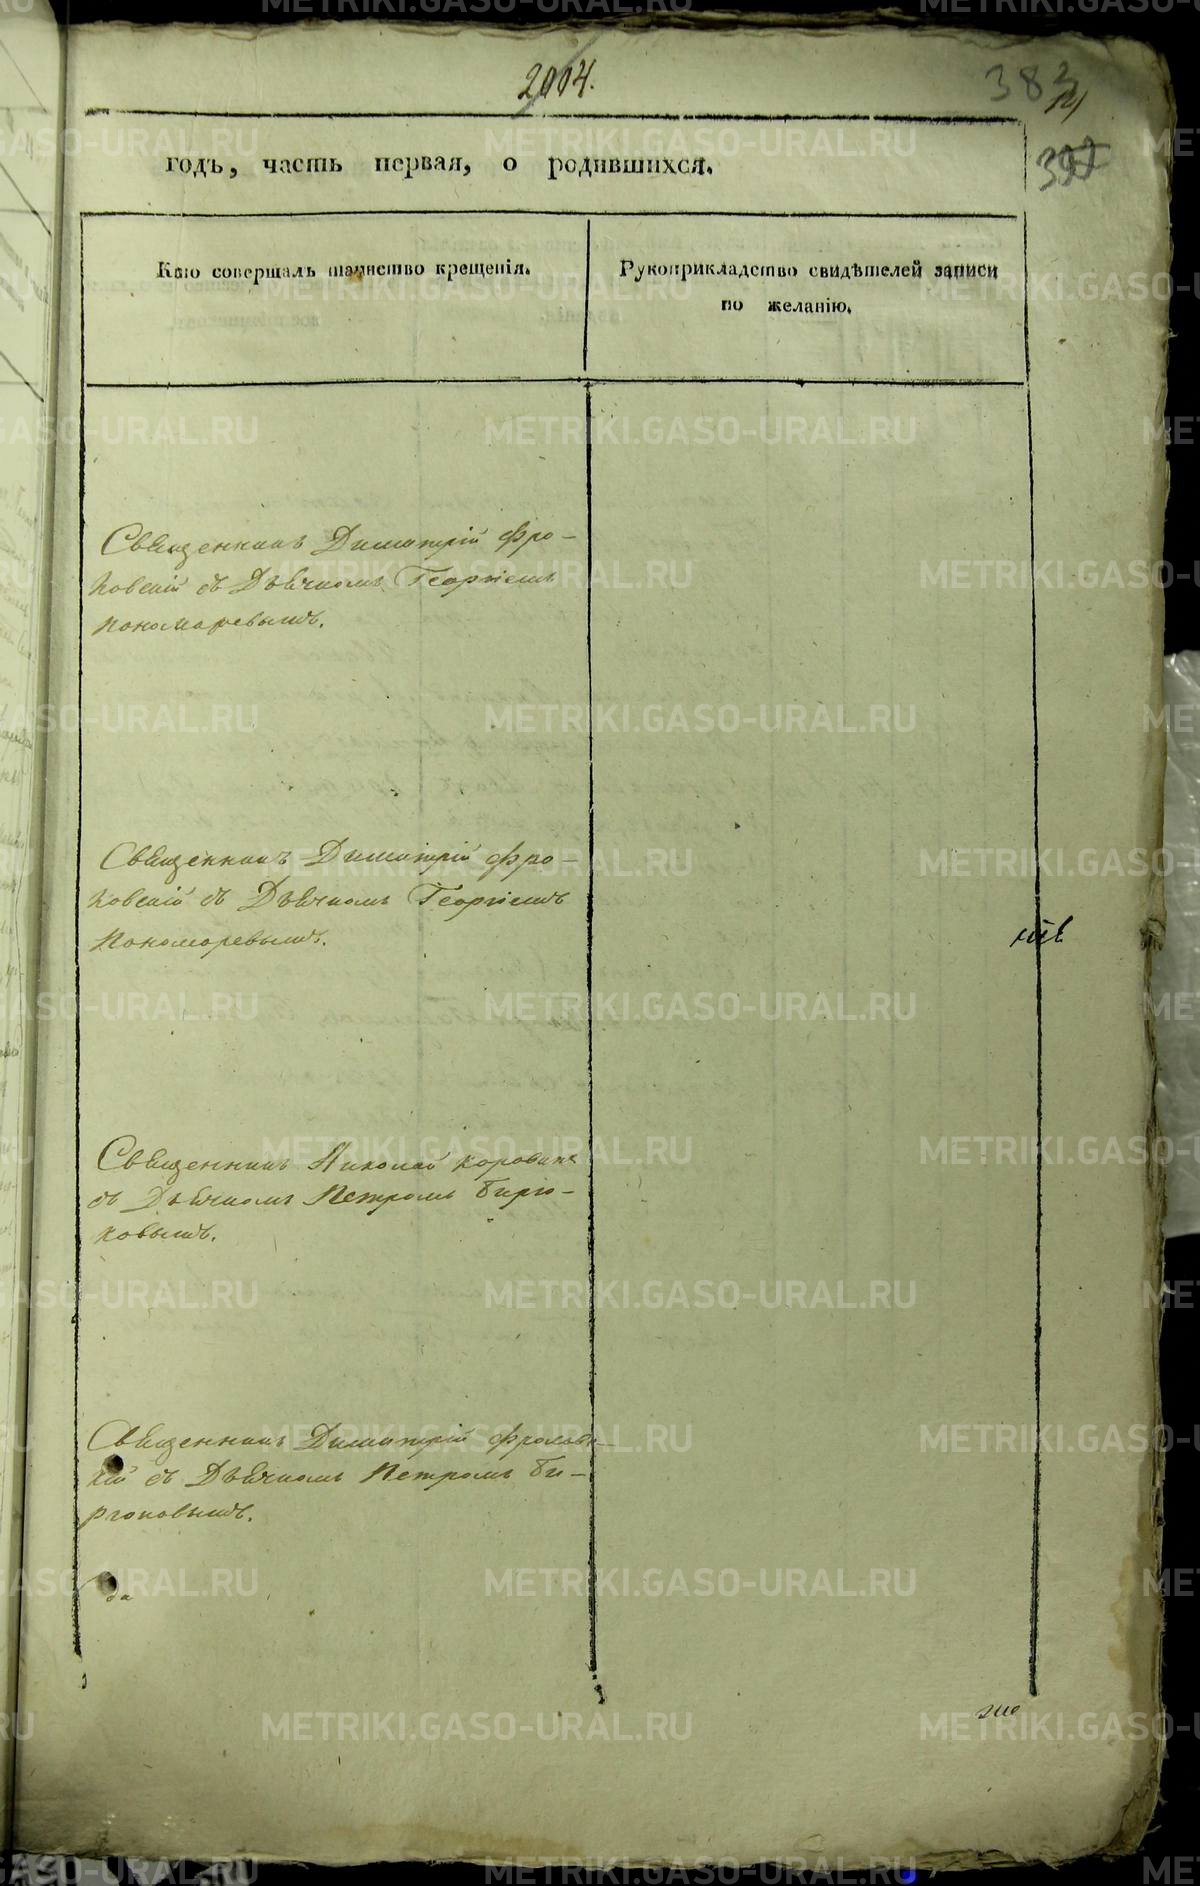 2004.
383
397
годъ, часть первая, о родившихся.
Кто совершалъ таинство крещенія.
Рукоприкладство свидѣтелей записи
по желанію.
Священникъ Димитрій Фро-
ловскій съ Дьячкомъ Георгіемъ
Пономаревымъ.
Священникъ Димитрій Фро-
ловскій съ Дьячкомъ Георгіемъ
Пономаревымъ.
Священникъ Николай Коровинъ
съ Дьячкомъ Петромъ Бирю-
ковымъ.
Священникъ Димитрій Фроловс-
кій съ Дьячкомъ Петромъ Би-
рюковымъ.
да
METRIKI.GASO-URAL.RU